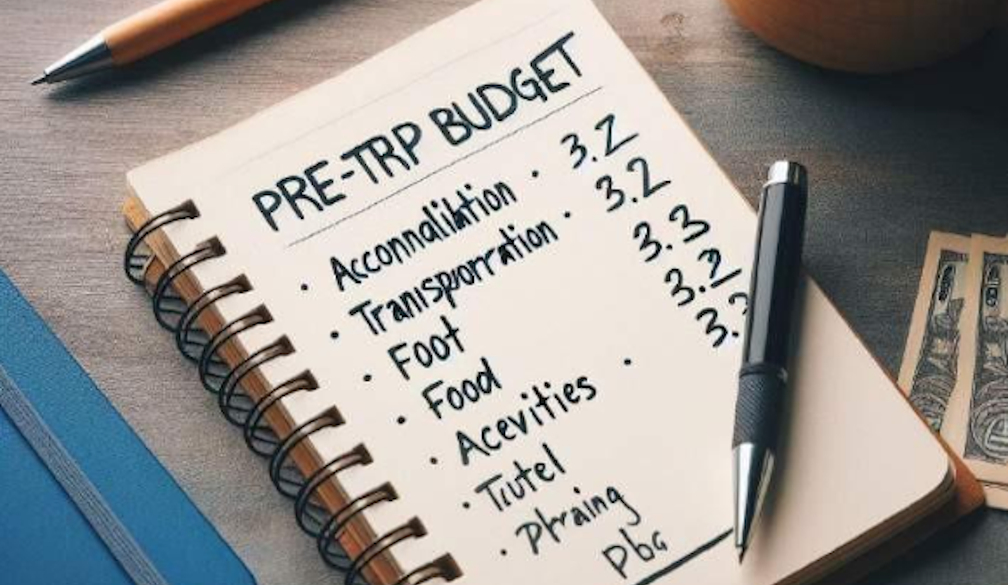 PRE-TRP BUDGET
· Acconnalibtion · 3.2
· Transporration · 3.2
· Foot 3.3
· Food 3.2
· Acevities · 3.
· Tiutel
· Phraing
Pba